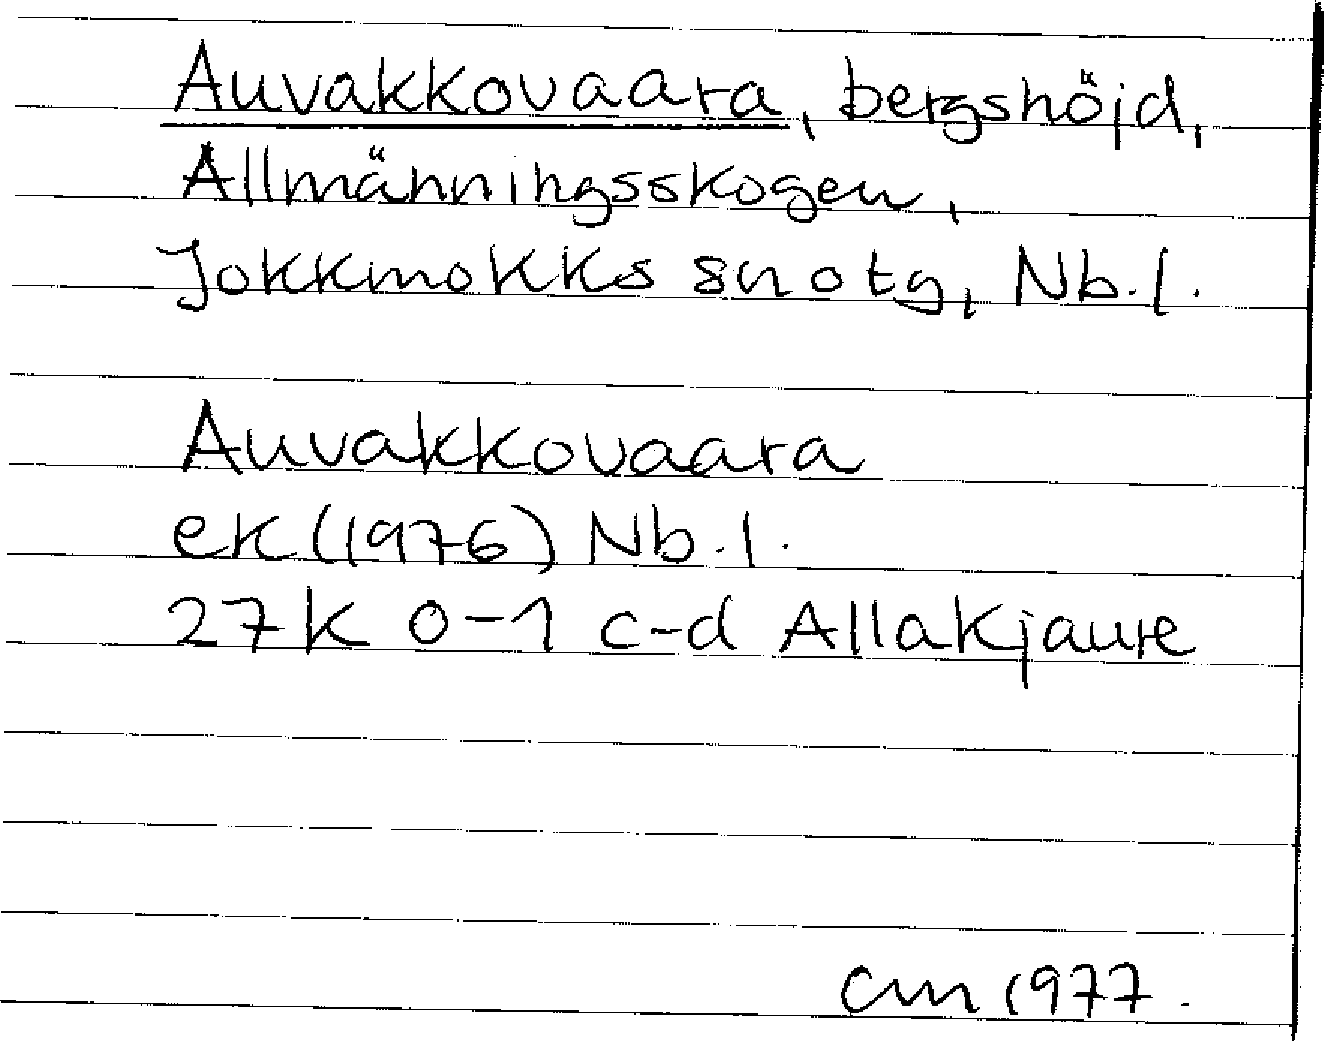 Auvakkovaara, bergshöjd,
Allmänningsskogen,
Jokkmokks sn o tg, Nb.l.
Auvakkovaara
ek (1976) Nb.l.
27K 0-1 c-d Allakjaure
cm 1977.